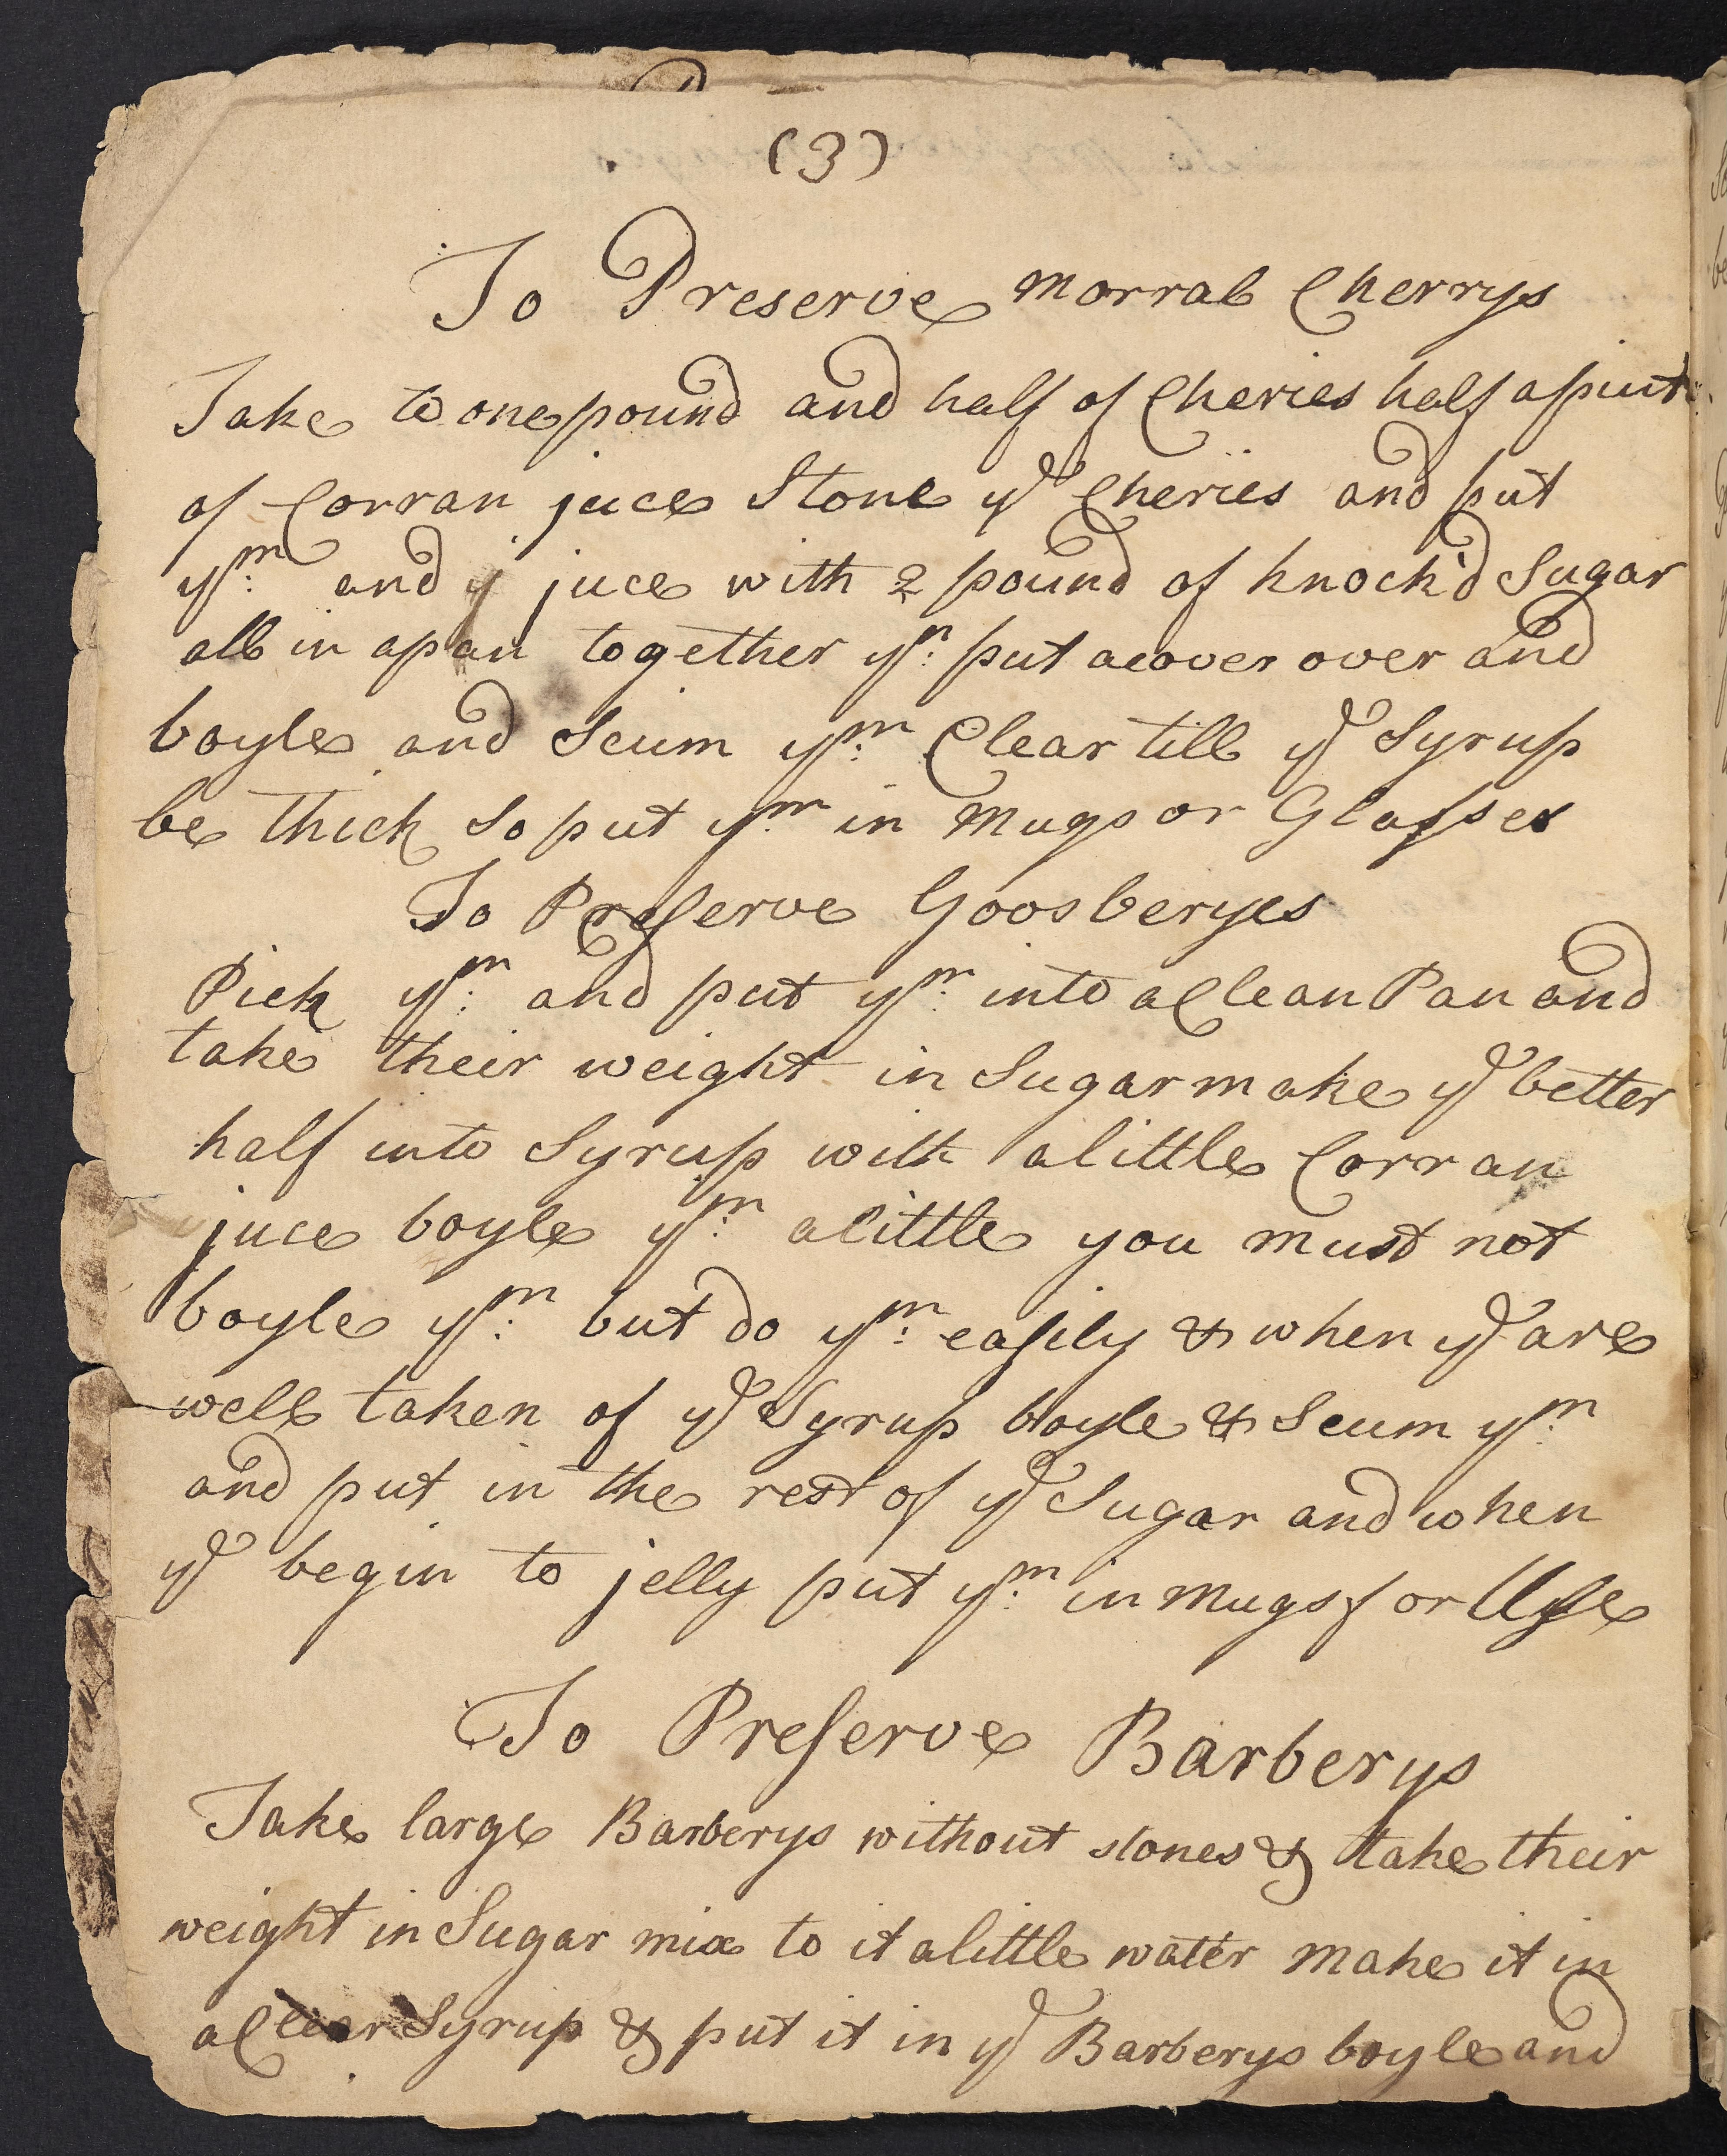 (3)
To Preserve Morrall Cherrys
Take to one pound and half of Cheries half a pint
of Corran juce Stone ye Cheries and put
ym: and ye juce with 2 pound of knock'd Sugar
all in a pan together yn: put a cover over and
boyle and Scum ym: Clear till ye Syrup
be thick So put ym: in Mugs or Glasses
To Preserve Goosberyes
Pick ym: and put ym: into a Clean Pan and
take their weight in Sugar make ye better
half into Syrup with a little Corran
juce boyle ym: a little you must not
boyle ym: but do ym: easily & when ye are
well taken of ye Syrup boyle & Scum ym:
and put in the rest of ye Sugar and when
ye begin to jelly put ym: in Mugs for Use
To Preserve Barberys
Take large Barberys without stones & take their
weight in Sugar mix to it a little water make it in
a Clear Syrup & put it in ye Barberys boyle and